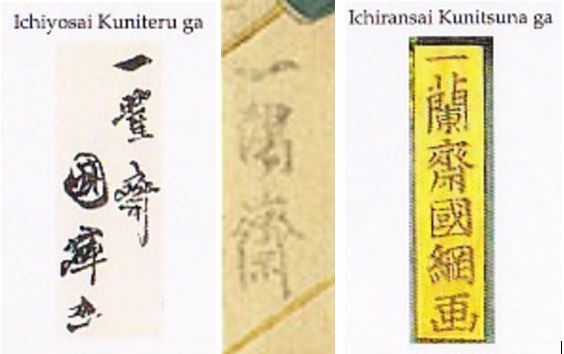 Ichiyosai Kuniteru ga
一
齋
國輝画
一
齋
Ichiransai Kunitsuna ga
一蘭齋國綱画